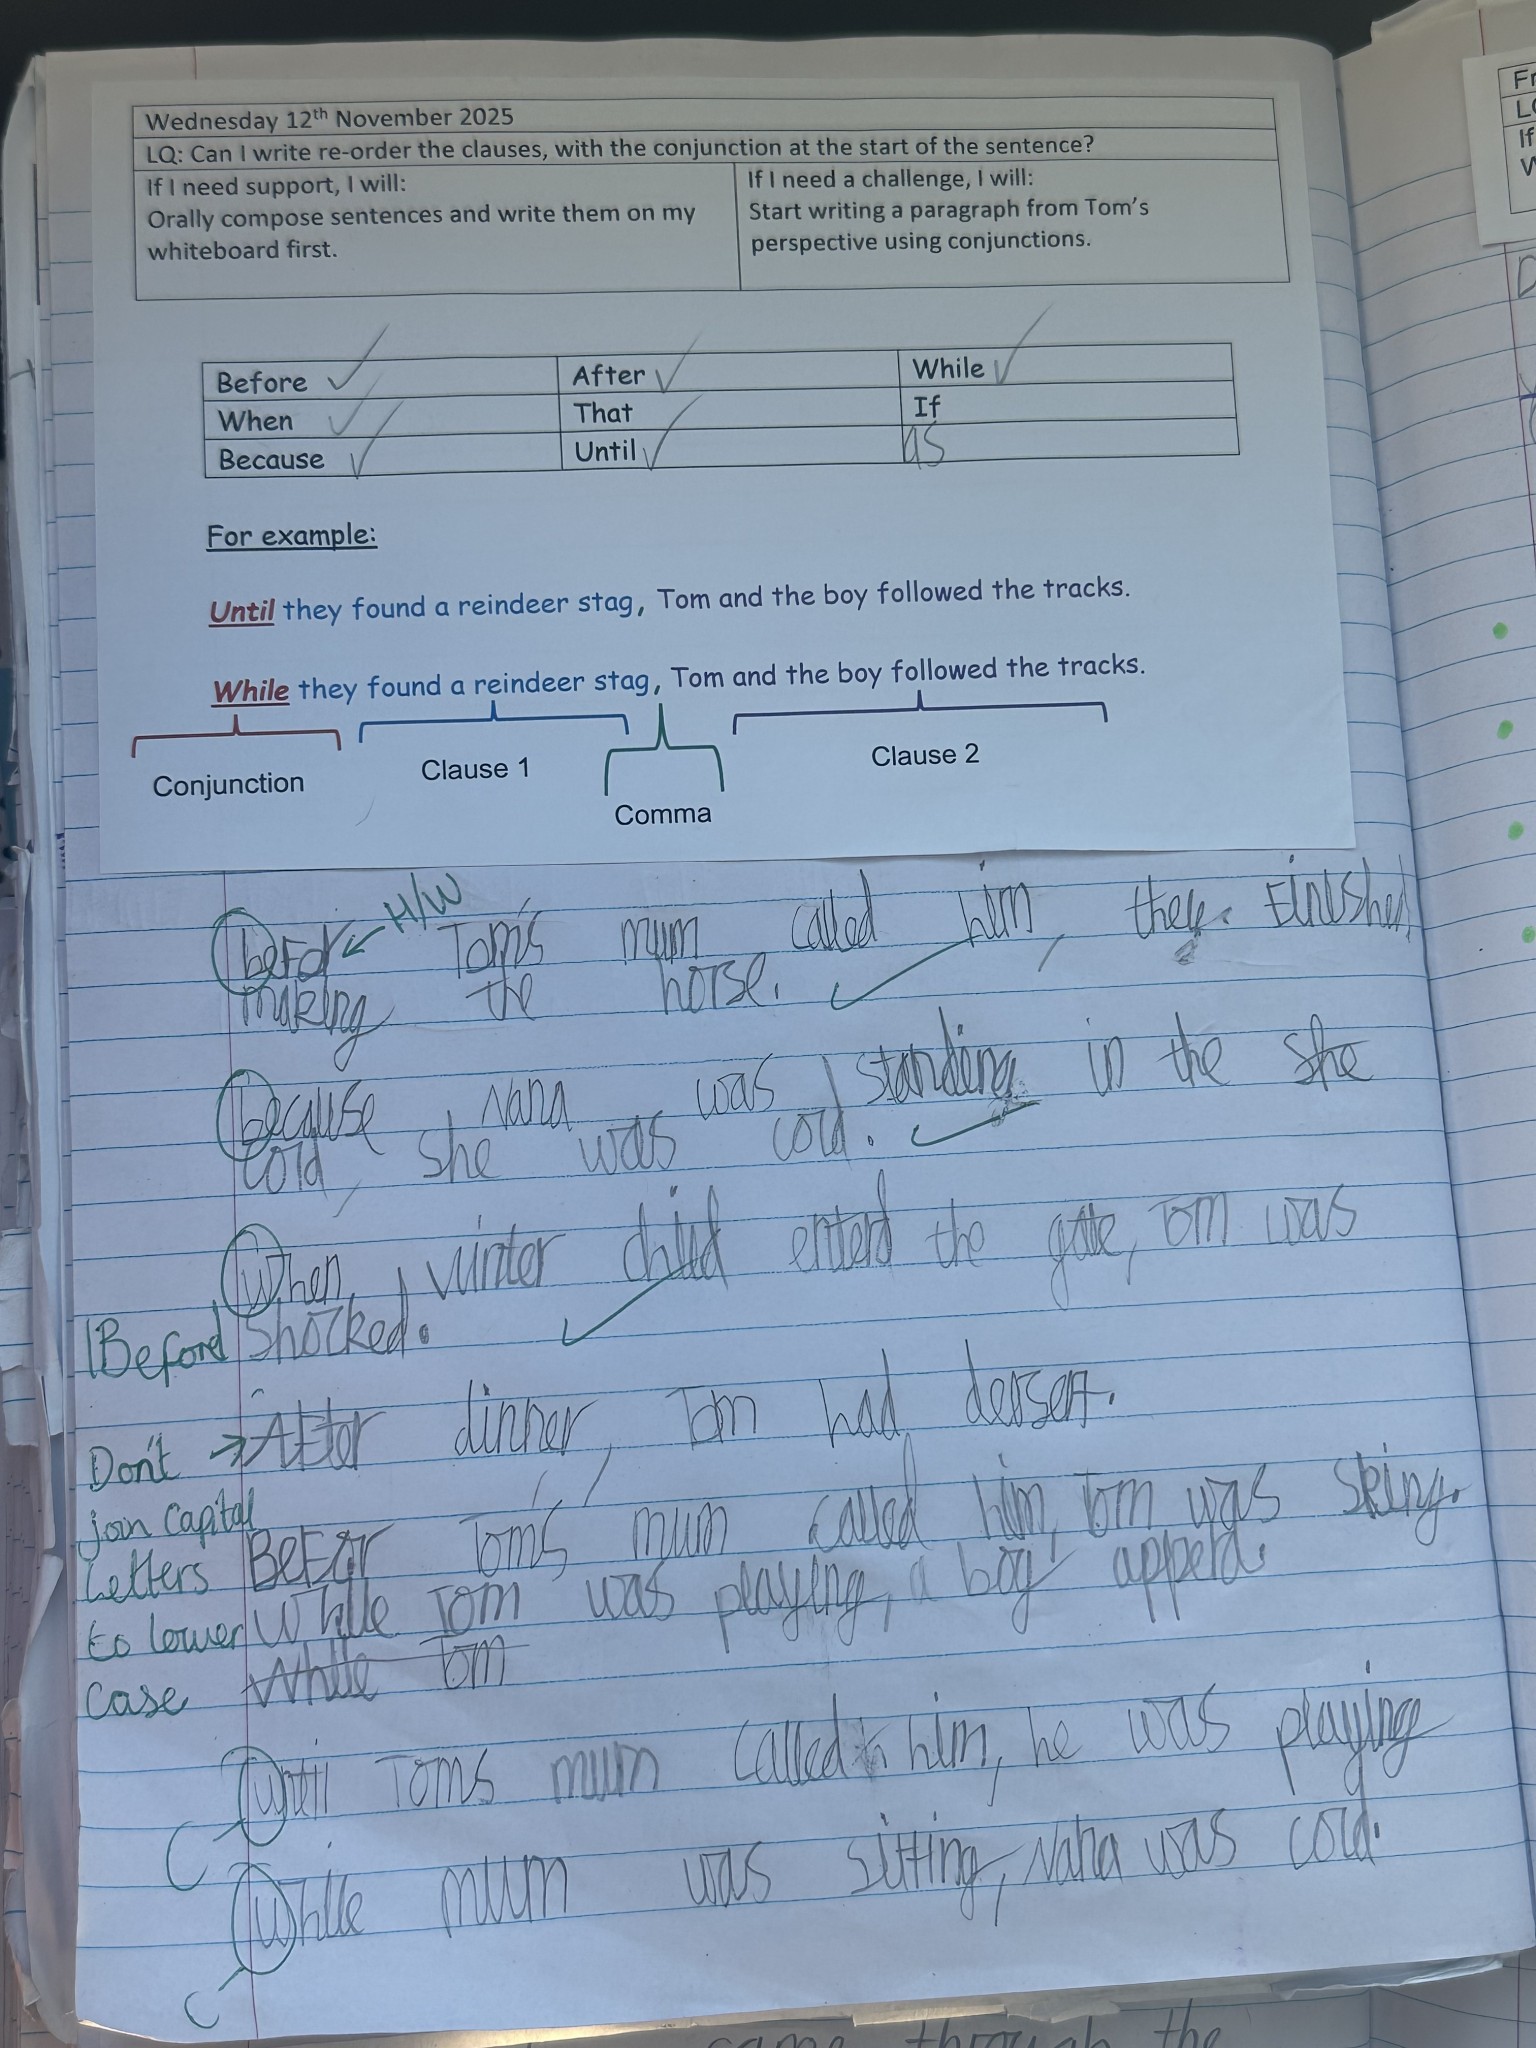 Wednesday 12th November 2025
LQ: Can I write re-order the clauses, with the conjunction at the start of the sentence?
If I need support, I will:
Orally compose sentences and write them on my
whiteboard first.
If I need a challenge, I will:
Start writing a paragraph from Tom's
perspective using conjunctions.
Before After While
When That If
Because Until as
For example:
Until they found a reindeer stag, Tom and the boy followed the tracks.
While they found a reindeer stag, Tom and the boy followed the tracks.
Conjunction Clause 1 Comma Clause 2
H/W
befor Tom's mum called him, they. Finished
making the horse.
because Nana was standing in the she
cold, she was cold.
when, winter child enterd the gate, Tom was
Before shocked.
Don't After dinner, Tom had dessert.
join capital
letters Befor Tom's mum called him, Tom was skiing.
to lower While Tom was playing, a boy apperd.
case While Tom
until Toms mum called him, he was playing
C
while mum was sitting, Nana was cold.
C
came through the
Fr
LQ
If
W